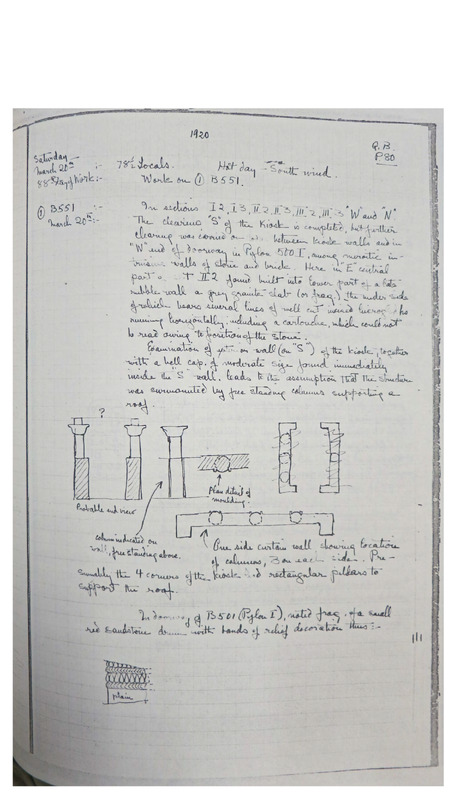 1920
G.B.
P80
Saturday
March 20th :-
88th Day of Work :-
78 Locals. Hot day - South wind.
Work on ① B551.
① B551
March 20th :-
In sections I.2, I.3, II.2, II.3, III.2, III.3 "W" and "N"
The clearing "S" of the Kiosk is completed, but further
clearing was carried on between kiosk walls and in
"W" end of doorway in Pylon 500 I, among meroitic in-
walls of stone and brick. Here in "E" central
part II 2 found built into lower part of a late
rubble wall a grey granite slab (or frag.) the under side
of which bears several lines of well cut
running horizontally, including a cartouche, which could not
be read owing to position of the stone.
Examination of on wall (on "S") of the kiosk, together
with a bell cap. of moderate size found immediately
inside the "S" wall, leads to the assumption that the structure
was surmounted by free standing columns supporting a
roof.
?
Probable end view
Plan detail of
moulding.
column indicated on
wall, free standing above.
One side curtain wall, showing location
of columns, 3 on each side. Pre-
sumably the 4 corners of the kiosk had rectangular pillars to
support the roof.
In doorway of B501 (Pylon I), noted frag. of a small
red sandstone drum with bands of relief decoration thus :-
plain